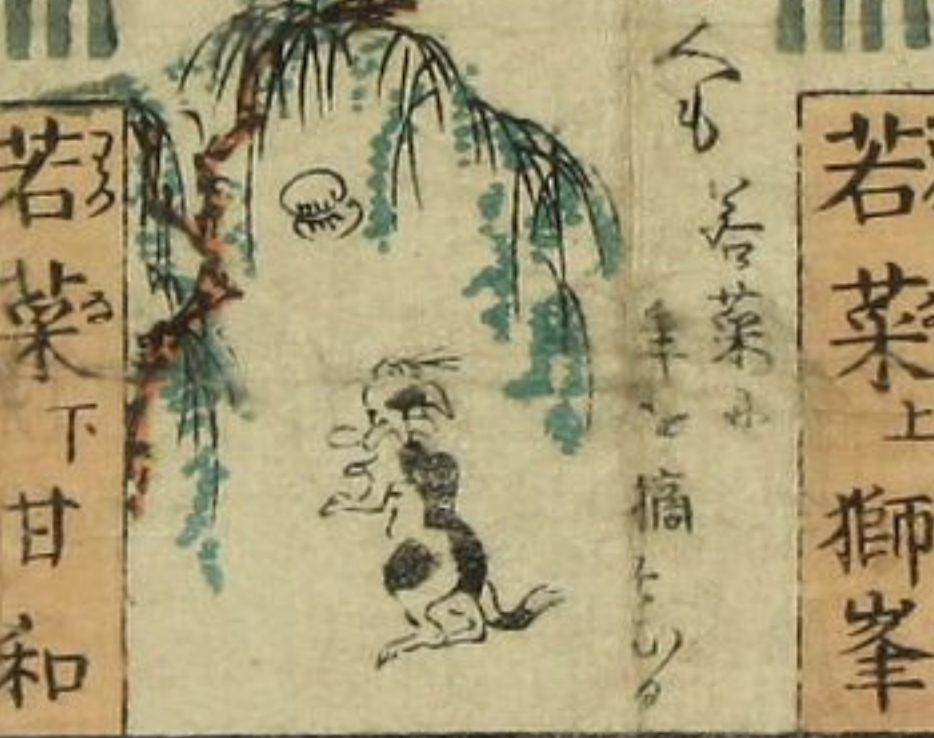 若菜上 獅峯
人も
若菜
年を摘
若菜下 甘和